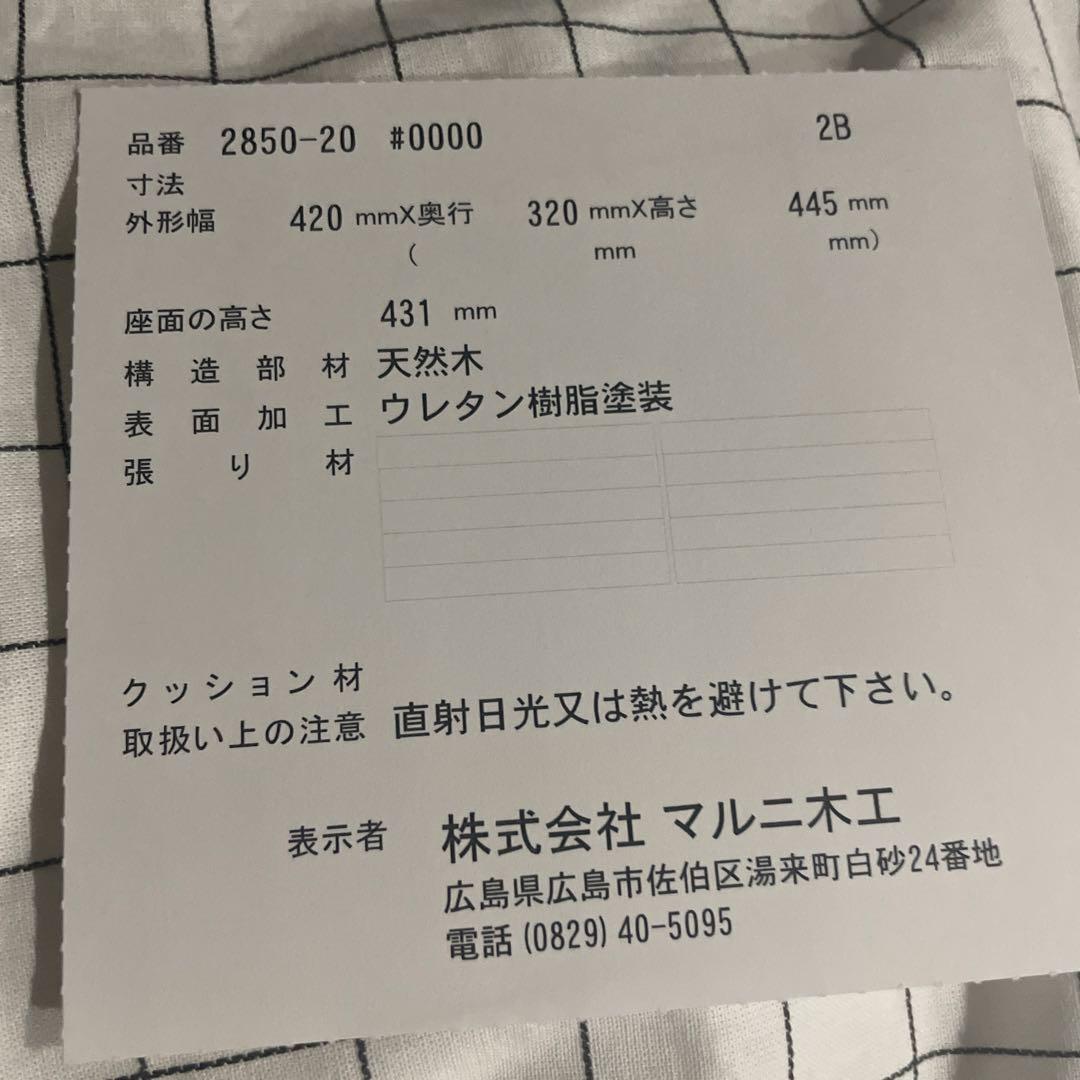 品番 2850-20 #0000 2B
寸法
外形幅 420 mmX奥行 320 mmX高さ 445 mm
( mm mm)
座面の高さ 431 mm
構造部材 天然木
表面加工 ウレタン樹脂塗装
張り材
クッション材
取扱い上の注意 直射日光又は熱を避けて下さい。
表示者 株式会社 マルニ木工
広島県広島市佐伯区湯来町白砂24番地
電話 (0829) 40-5095